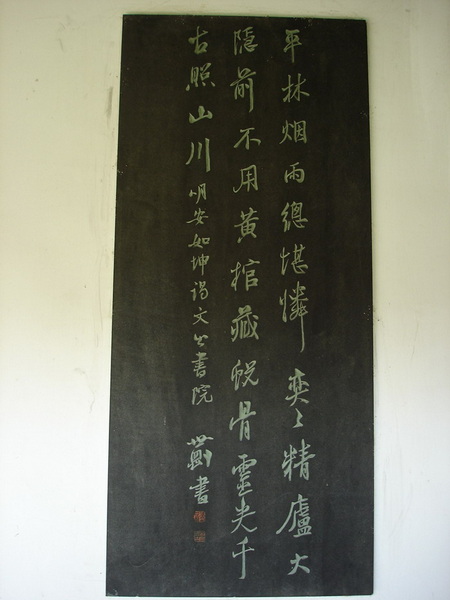 平林烟雨總堪憐奕〻精廬大
隱前不用黃棺藏蜕骨靈光千
古照山川 明安如坤謁文公書院 書